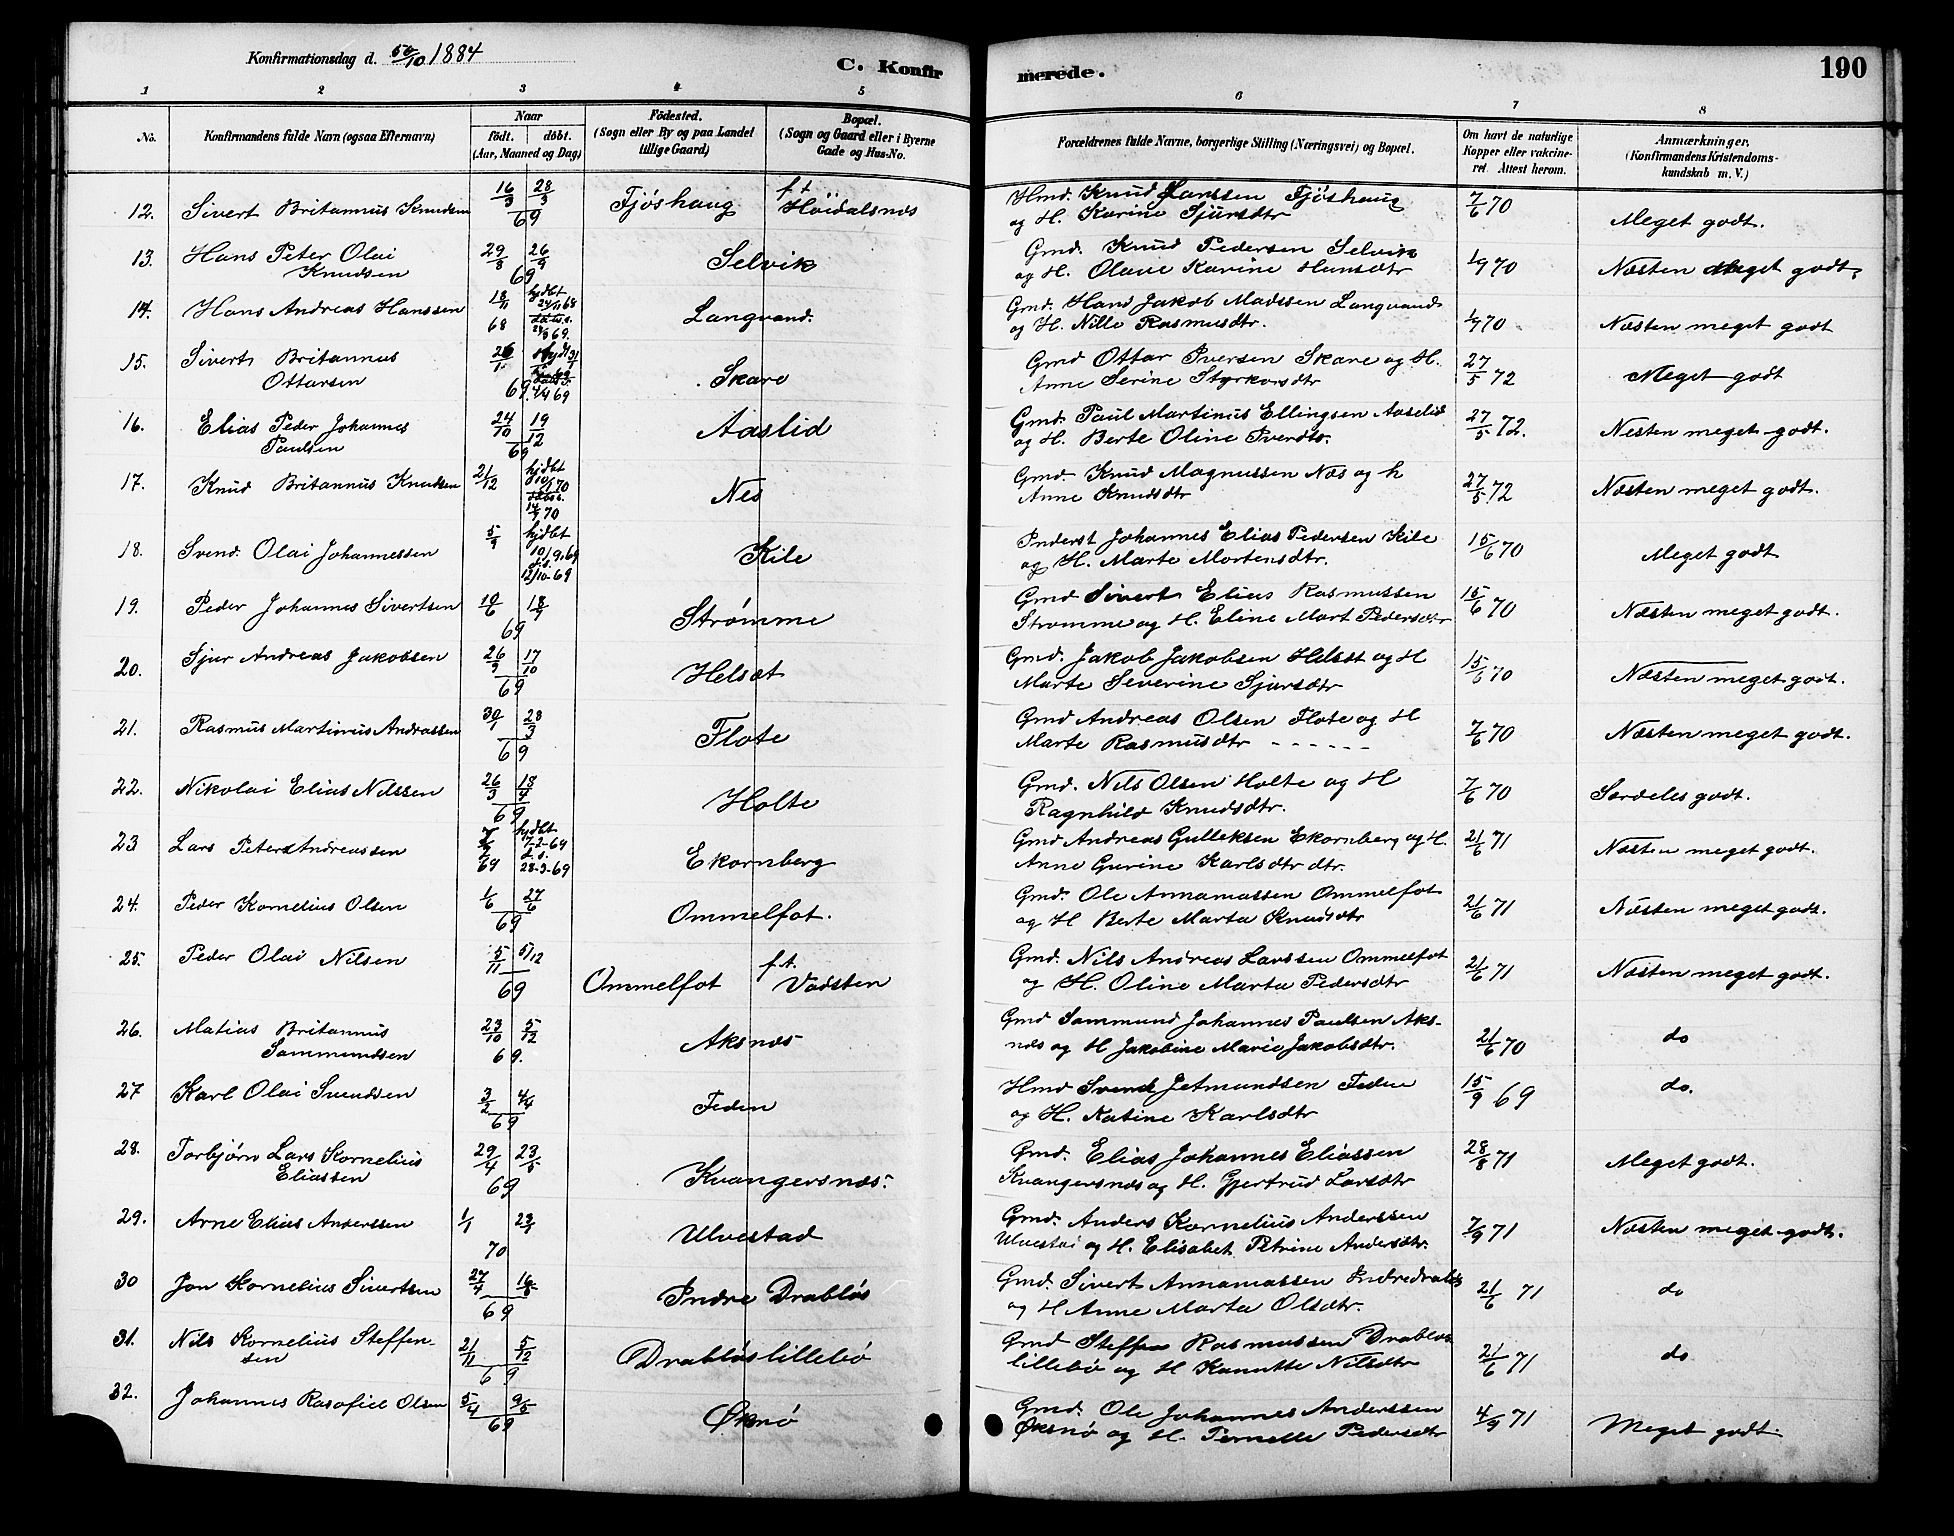 Konfirmationsdag d. 5/10 1884
C. Konfirmerede.
190
1 2 3 4 5 6 7 8
No.
Konfirmandens fulde Navn (ogsaa Efternavn)
Naar
födt. döbt.
(Aar, Maaned og Dag)
Födested.
(Sogn eller By og paa Landet
tillige Gaard)
Bopæl.
(Sogn og Gaard eller i Byerne
Gade og Hus-No.
Forældrenes fulde Navne, borgerlige Stilling (Næringsvei) og Bopæl.
Om havt de naturlige
Kopper eller vakcine-
ret Attest herom.
Anmærkninger,
(Konfirmandens Kristendoms-
kundskab m. V.)
12. Sivert Britannus Knudsen 16/3 28/3 69 Fjöshaug f.t. Höidalsnæs Hmd. Knud Larssen Fjöshaug
og H. Karine Sjursdtr 7/6 70 Meget godt.
13. Hans Peter Olai
Knudsen 29/8 26/9 69 Selvik Gmd. Knud Pedersen Selvik
og H. Olave Karine Hansdtr 1/9 70 Næsten Meget godt.
14. Hans Andreas Hanssen 18/11 68 hjdbt 24/11 68 69. Langvand. Gmd. Hans Jakob Madssen Langvand
og H. Nille Rasmusdtr. 1/9 70 Næsten meget godt
15. Sivert Britannus
Ottarsen 26/1 69 4/4 69 Skare Gmd Ottar Iversen Skare og H.
Anne Serine Styrkorsdtr 27/5 72 Meget godt
16. Elias Peder Johannes
Paulsen 24/10 19/12 69 Aaslid Gmd. Paul Martinus Ellingsen Aaselid
og H. Berte Oline Iverdtr. 27/5 72. Nesten meget godt.
17. Knud Britannus Knudsen 21/12 hjdbt 10/1 70 70 Nes Gmd. Knud Magnussen Næs og h
Anne Knudsdtr 27/5 72 Næsten meget godt.
18. Svend Olai Johannessen 5/9 hjdbt 10/9.69 12/10-69 Kile Inderst Johannes Elias Pedersen Kile
og H. Marte Mortensdtr. 15/6 70 Meget godt
19. Peder Johannes Sivertsen 10/6 18/7 69 Strømme Gmd Sivert Elias Rasmussen
Strømme og H. Eline Mart Pedersdtr 15/6 70 Næsten meget godt.
20. Sjur Andreas Jakobsen 26/9 17/10 69 Helsæt Gmd. Jakob Jakobsen Helsæt og H
Marte Severine Sjursdtr 15/6 70 Næsten meget godt.
21. Rasmus Martinus Andrassen 30/1 28/3 69 Flote Gmd Andreas Olsen Flote og H
Marte Rasmusdtr - - - - - - 7/6 70 Næsten meget godt.
22. Nikolai Elias Nilssen 26/3 18/4 69 Holte Gmd. Nils Olsen Holte og H
Ragnhild Knudsdtr. 7/6 70 Særdeles godt.
23 Lars Peter Andreassen 7/2 69 hjdbt 7-2-69 28-3-69 Ekornberg Gmd Andreas Gulleksen Ekornberg og H.
Anne Gurine Karlsdtr dtr. 21/6 71 Næsten meget godt.
24. Peder Kornelius Olsen 1/6 27/6 69 Ommelfot. Gmd. Ole Annamassen Ommelfot
og H Berte Marta Knudsdtr 21/6 71 Næsten meget godt.
25. Peder Olai Nilsen 5/11 5/12 69 Ommelfot f.t. Vadsten Gmd. Nils Andreas Larssen Ommelfot
og H. Oline Marta Pedersdtr 21/6 71 Næsten meget godt.
26. Matias Britannus
Sammundsen 23/10 5/12 69. Aksnæs Gmd Sammund Johannes Paulsen Aks-
næs og H Jakobine Marie Jakobsdtr. 21/6 70 do
27 Karl Olai Svendsen 3/2 4/4 69 Feden Hmd Svend Jetmundsen Feden
og H. Natine Karlsdtr 15/9 69 do.
28. Torbjørn Lars Kornelius
Eliassen 29/4 23/5 69 Kvangersnæs. Gmd. Elias Johannes Eliassen
Kvangersnæs og H. Gjertrud Larsdtr 28/8 71 Meget godt.
29. Arne Elias Anderssen 1/1 23/1 70 Ulvestad Gmd. Anders Kornelius Anderssen
Ulvestad og H. Elisabet Petrine Andersdtr. 7/9 71 Næsten meget godt.
30 Jon Kornelius Sivertsen 27/4 16/5 69 Indre Drabløs Gmd. Sivert Annamassen Indredrabløs
og H Anne Marta Olsdtr. 21/6 71 do
31. Nils Kornelius Steffen-
sen 21/11 5/12 69 Drabløslillebø Gmd Steffen Rasmussen Drabløs
lillebø og H Kanutte Nilsdtr 21/6 71 do
32. Johannes Rasofiel Olsen 5/4 9/5 69 Øksnø Gmd. Ole Johannes Anderssen
Øksnø og H. Pernelle Pedersdtr 4/9 71 Meget godt.